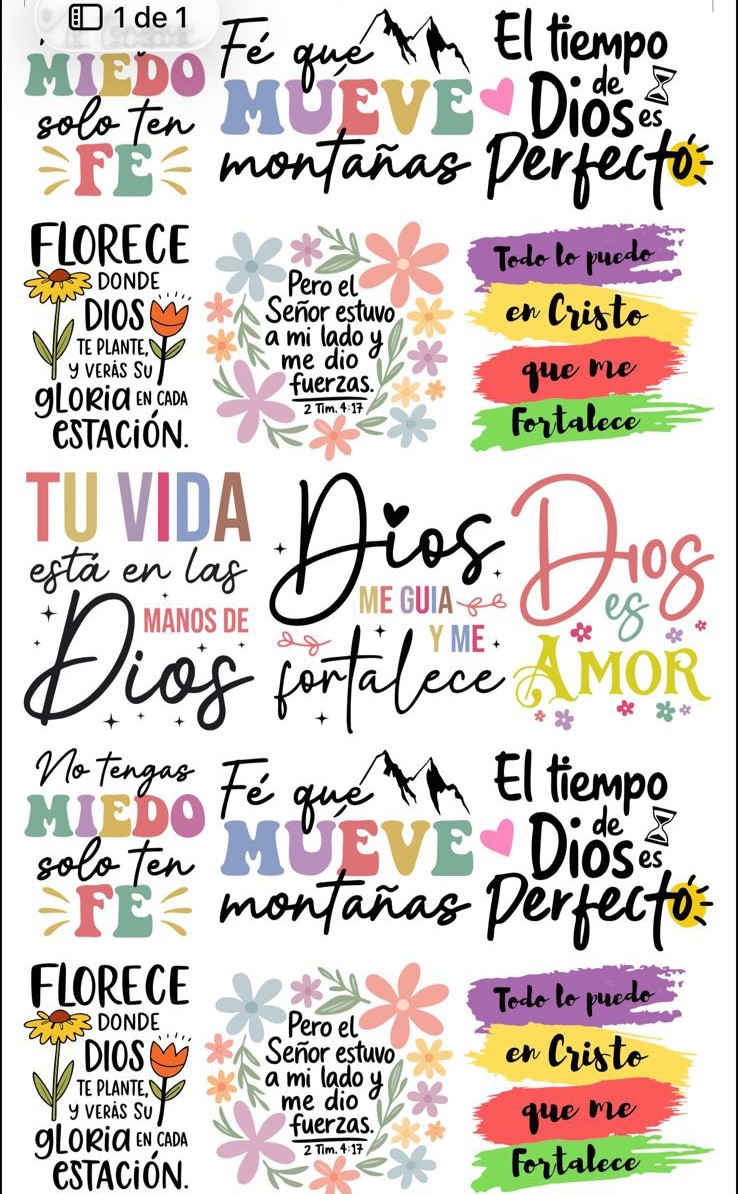 1 de 1
MIEDO
solo ten
FE
Fé que
MUÉVE
montañas
El tiempo
de
Dios es
Perfecto
FLORECE
DONDE
DIOS
TE PLANTE,
Y VERÁS SU
GLORIA EN CADA
ESTACIÓN.
Pero el
Señor estuvo
a mi lado y
me dio
fuerzas.
2 Tim. 4:17
Todo lo puedo
en Cristo
que me
Fortalece
TU VIDA
está en las
MANOS DE
Dios
Dios
ME GUIA
Y ME
fortalece
Dios
es
AMOR
No tengas
MIEDO
solo ten
FE
Fé que
MUÉVE
montañas
El tiempo
de
Dios es
Perfecto
FLORECE
DONDE
DIOS
TE PLANTE,
Y VERÁS SU
GLORIA EN CADA
ESTACIÓN.
Pero el
Señor estuvo
a mi lado y
me dio
fuerzas.
2 Tim. 4:17
Todo lo puedo
en Cristo
que me
Fortalece